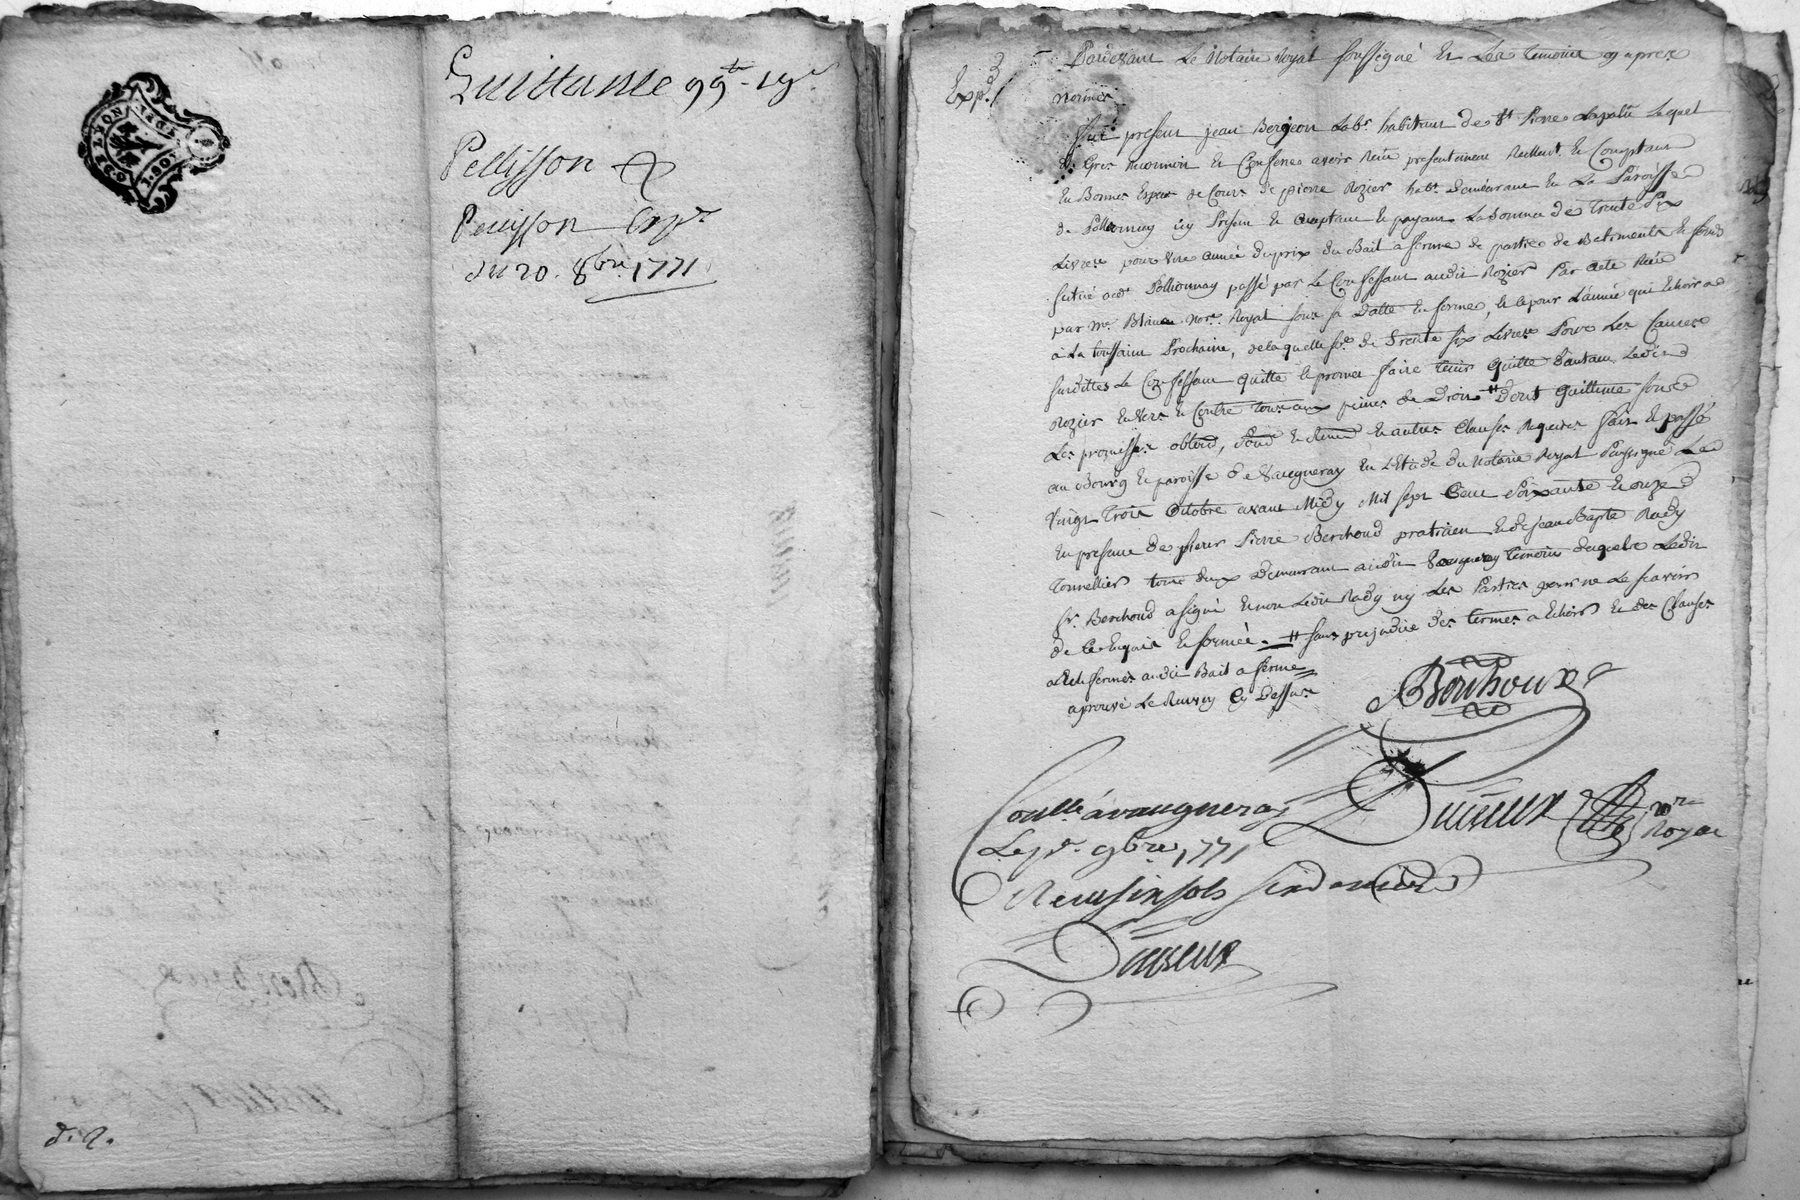 Quittance 99# - 19s
Pellisson &
Pellisson Exp.
du 20. 8bre. 1771
GEN. DE LYON
1. SOL
d. 2.
Pardevant Le Notaire Royal soussigné Et Les temoins cy apres
Exp. 3
nommés
fut present jean Bergeon Lab. habitant de St Pierre Lapalu Lequel
de Gré reconnoit Et Confesse avoir Reçu presentement Reellement Et Comptant
En Bonnes Especes de Cours de pierre Rozier hab. Demeurant En La Paroisse
de Pollionnay icy Present Et acceptant Et payant La Somme de Trente Six
Livres pour Une année du prix du Bail a ferme de partie de Batiments Et fonds
situé aud. Pollionnay passé par Le Confessant audit Rozier Par acte Reçu
par Me. Blanc Nore. Royal sous sa Datte En forme, Et Ce pour L'année qui Echoira
a La toussaint Prochaine, de laquelle so. de Trente six Livres Pour Les Causes
susdittes Le Confessant quitte Et promet faire tenir quitte Dautant Ledit
Rozier Envers Et Contre tous aux peines de Droit # Dont quittance sous
Les promesses oblond, Soud Et Renon Et autres Clauses Requises fait Et passé
au Bourg Et paroisse de Vaugneray En L'Etude du Notaire Royal soussigné Le
Vingt Trois Octobre avant Midy Mil sept Cent Soixante Et onze
En presence de sieur Pierre Berchoud praticien Et de jean Bapte Rady
Tonnellier tous deux Demeurant audit Vaugneray temoins desquels Ledit
sr. Berchoud a signé Et non Ledit Rady ny Les Parties pour ne Le scavoir
de Ce Enquis Et sommé. # sans prejudice des termes a Echoir Et des Clauses
a Renfermés audit Bail a ferme
aprouvé Le Renvoy Cy Dessus
Berchoud
Conllé a vaugneray
Le pr. 9bre 1771
nore
Royal
Reçu six sols six deniers